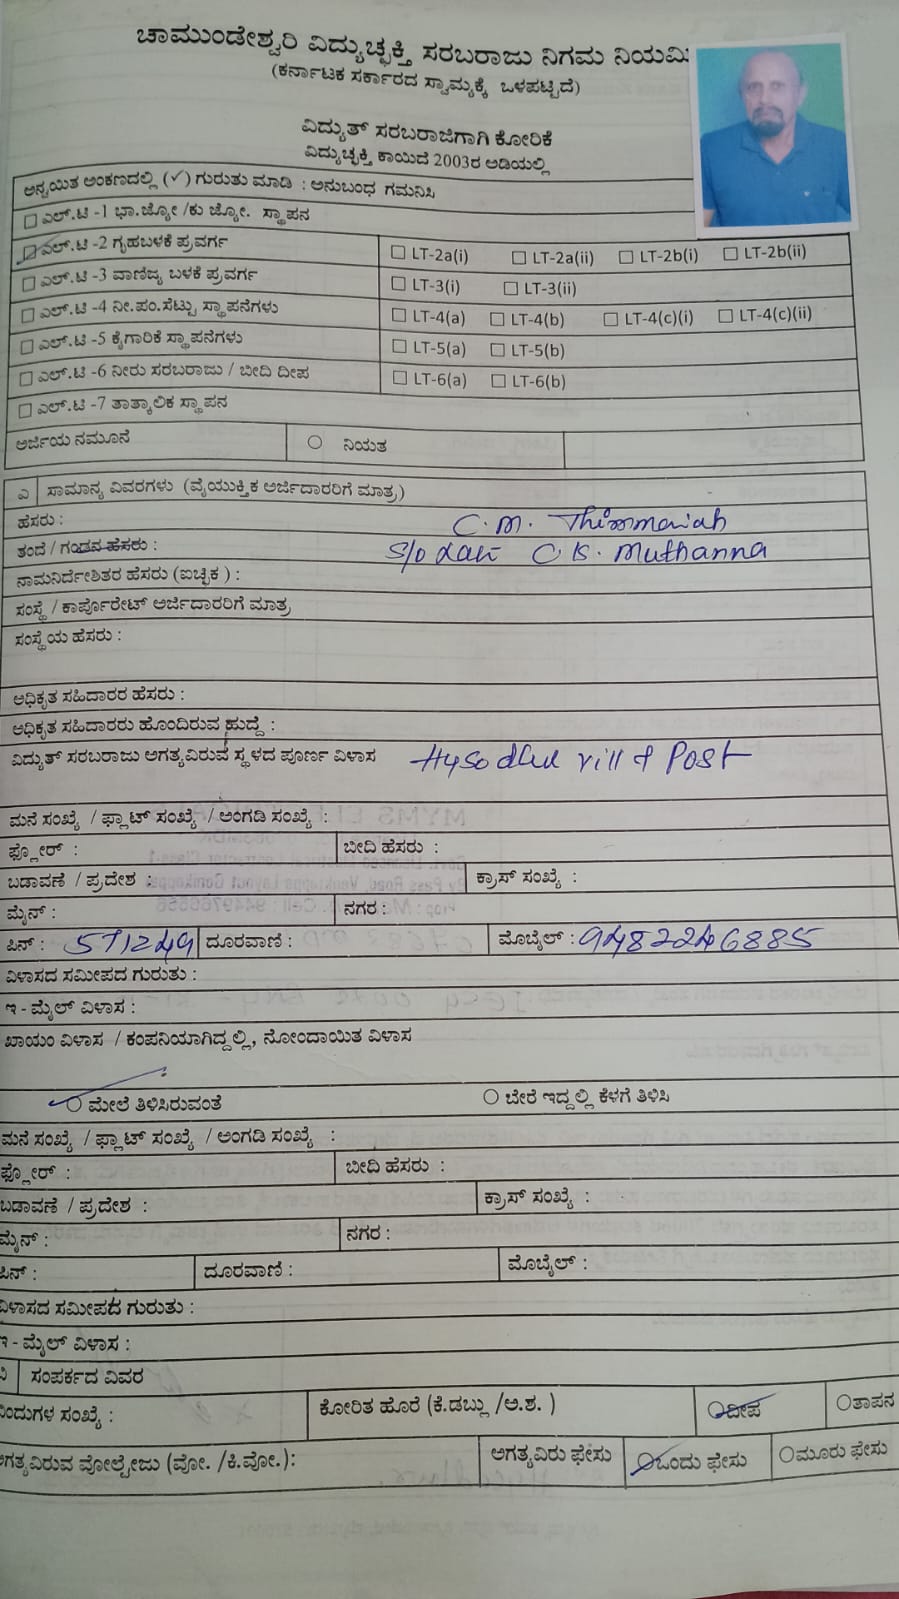 ಚಾಮುಂಡೇಶ್ವರಿ ವಿದ್ಯುಚ್ಛಕ್ತಿ ಸರಬರಾಜು ನಿಗಮ ನಿಯಮಿ
(ಕರ್ನಾಟಕ ಸರ್ಕಾರದ ಸ್ವಾಮ್ಯಕ್ಕೆ ಒಳಪಟ್ಟಿದೆ)
ವಿದ್ಯುತ್ ಸರಬರಾಜಿಗಾಗಿ ಕೋರಿಕೆ
ವಿದ್ಯುಚ್ಛಕ್ತಿ ಕಾಯಿದೆ 2003ರ ಅಡಿಯಲ್ಲಿ
ಅನ್ವಯಿತ ಅಂಕಣದಲ್ಲಿ (✓) ಗುರುತು ಮಾಡಿ : ಅನುಬಂಧ ಗಮನಿಸಿ
☐ ಎಲ್.ಟಿ -1 ಭಾ.ಜ್ಯೋ /ಕು ಜ್ಯೋ. ಸ್ಥಾಪನ
☑ ಎಲ್.ಟಿ -2 ಗೃಹಬಳಕೆ ಪ್ರವರ್ಗ ☐ LT-2a(i) ☐ LT-2a(ii) ☐ LT-2b(i) ☐ LT-2b(ii)
☐ ಎಲ್.ಟಿ -3 ವಾಣಿಜ್ಯ ಬಳಕೆ ಪ್ರವರ್ಗ ☐ LT-3(i) ☐ LT-3(ii)
☐ ಎಲ್.ಟಿ -4 ನೀ.ಪಂ.ಸೆಟ್ಟು ಸ್ಥಾಪನೆಗಳು ☐ LT-4(a) ☐ LT-4(b) ☐ LT-4(c)(i) ☐ LT-4(c)(ii)
☐ ಎಲ್.ಟಿ -5 ಕೈಗಾರಿಕೆ ಸ್ಥಾಪನೆಗಳು ☐ LT-5(a) ☐ LT-5(b)
☐ ಎಲ್.ಟಿ -6 ನೀರು ಸರಬರಾಜು / ಬೀದಿ ದೀಪ ☐ LT-6(a) ☐ LT-6(b)
☐ ಎಲ್.ಟಿ -7 ತಾತ್ಕಾಲಿಕ ಸ್ಥಾಪನ
ಅರ್ಜಿಯ ನಮೂನೆ ○ ನಿಯತ
ಎ ಸಾಮಾನ್ಯ ವಿವರಗಳು (ವೈಯುಕ್ತಿಕ ಅರ್ಜಿದಾರರಿಗೆ ಮಾತ್ರ)
ಹೆಸರು : C.M. Thimmaiah
ತಂದೆ / ಗಂಡನ ಹೆಸರು : S/o Late C K. Muthanna
ನಾಮನಿರ್ದೇಶಿತರ ಹೆಸರು (ಐಚ್ಛಿಕ ) :
ಸಂಸ್ಥೆ / ಕಾರ್ಪೊರೇಟ್ ಅರ್ಜಿದಾರರಿಗೆ ಮಾತ್ರ
ಸಂಸ್ಥೆಯ ಹೆಸರು :
ಅಧಿಕೃತ ಸಹಿದಾರರ ಹೆಸರು :
ಅಧಿಕೃತ ಸಹಿದಾರರು ಹೊಂದಿರುವ ಹುದ್ದೆ :
ವಿದ್ಯುತ್ ಸರಬರಾಜು ಅಗತ್ಯವಿರುವ ಸ್ಥಳದ ಪೂರ್ಣ ವಿಳಾಸ Hysodlur vill & Post
ಮನೆ ಸಂಖ್ಯೆ / ಫ್ಲಾಟ್ ಸಂಖ್ಯೆ / ಅಂಗಡಿ ಸಂಖ್ಯೆ :
ಫ್ಲೋರ್ : ಬೀದಿ ಹೆಸರು :
ಬಡಾವಣೆ / ಪ್ರದೇಶ : ಕ್ರಾಸ್ ಸಂಖ್ಯೆ :
ಮೈನ್ : ನಗರ :
ಪಿನ್ : 571249 ದೂರವಾಣಿ : ಮೊಬೈಲ್ : 9482246885
ವಿಳಾಸದ ಸಮೀಪದ ಗುರುತು :
ಇ - ಮೈಲ್ ವಿಳಾಸ :
ಖಾಯಂ ವಿಳಾಸ / ಕಂಪನಿಯಾಗಿದ್ದಲ್ಲಿ, ನೋಂದಾಯಿತ ವಿಳಾಸ
○ ಮೇಲೆ ತಿಳಿಸಿರುವಂತೆ ○ ಬೇರೆ ಇದ್ದಲ್ಲಿ ಕೆಳಗೆ ತಿಳಿಸಿ
ಮನೆ ಸಂಖ್ಯೆ / ಫ್ಲಾಟ್ ಸಂಖ್ಯೆ / ಅಂಗಡಿ ಸಂಖ್ಯೆ :
ಫ್ಲೋರ್ : ಬೀದಿ ಹೆಸರು :
ಬಡಾವಣೆ / ಪ್ರದೇಶ : ಕ್ರಾಸ್ ಸಂಖ್ಯೆ :
ಮೈನ್ : ನಗರ :
ಪಿನ್ : ದೂರವಾಣಿ : ಮೊಬೈಲ್ :
ವಿಳಾಸದ ಸಮೀಪದ ಗುರುತು :
ಇ - ಮೈಲ್ ವಿಳಾಸ :
ಸಂಪರ್ಕದ ವಿವರ
ಬಿಂದುಗಳ ಸಂಖ್ಯೆ : ಕೋರಿತ ಹೊರೆ (ಕಿ.ಡಬ್ಲು /ಅ.ಶ. ) ○ ದೀಪ ○ ತಾಪನ
ಅಗತ್ಯವಿರುವ ವೋಲ್ಟೇಜು (ವೋ. /ಕಿ.ವೋ.): ಅಗತ್ಯವಿರು ಫೇಸು ○ ಒಂದು ಫೇಸು ○ ಮೂರು ಫೇಸು